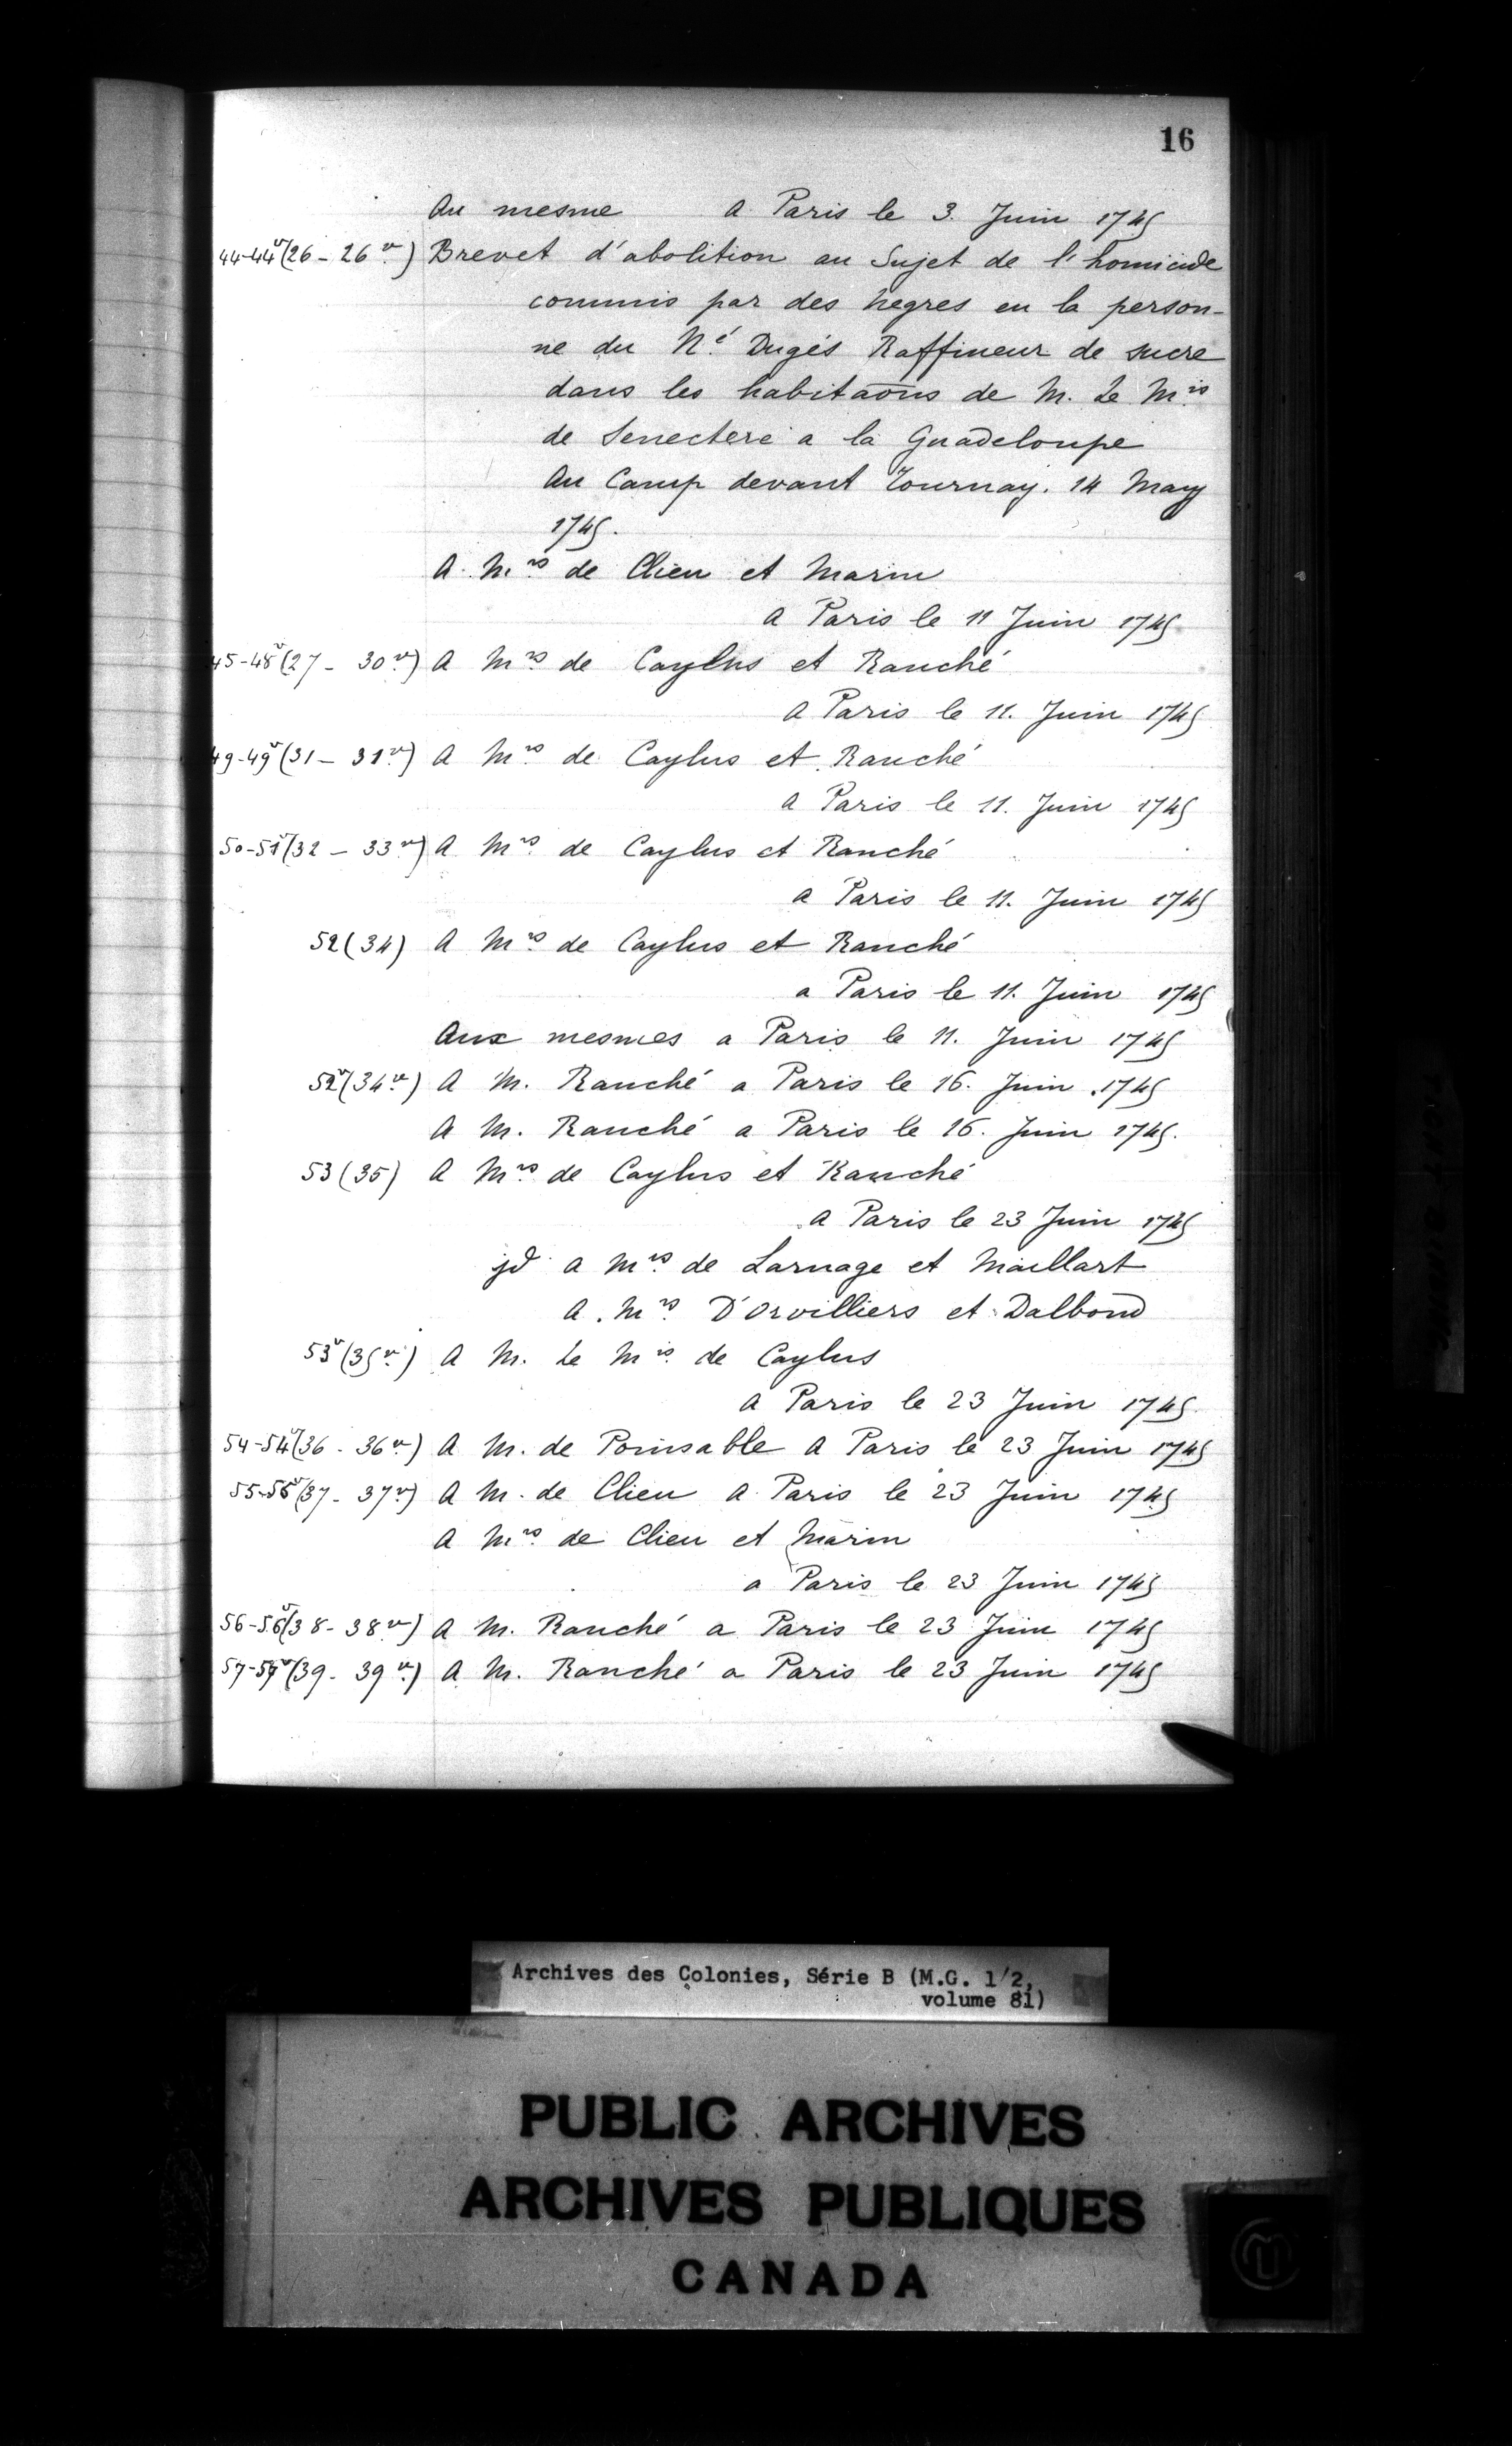 16
Au mesme a Paris le 3. Juin 1745
44-44v (26 - 26v.) Brevet d'abolition au Sujet de l'homicide
commis par des negres en la person-
ne du Né Dugés Raffineur de sucre
dans les habitaõns de M. Le Mis
de Senectere a la Guadeloupe
Au Camp devant Tournay. 14 May
1745.
A Mrs. de Clieu et Marin
a Paris le 11 Juin 1745
45-48v (27 - 30v.) A Mrs. de Caylus et Ranché
A Paris le 11. Juin 1745
49-49v (31 - 31v.) A Mrs. de Caylus et Ranché
a Paris le 11. Juin 1745
50-51v (32 - 33v.) A Mrs. de Caylus et Ranché
a Paris le 11. Juin 1745
52 (34) A Mrs. de Caylus et Ranché
a Paris le 11. Juin 1745
Aux mesmes a Paris le 11. Juin 1745
52v (34v.) A M. Ranché a Paris le 16. Juin 1745
A M. Ranché a Paris le 16. Juin 1745.
53 (35) A Mrs. de Caylus et Ranché
a Paris le 23 Juin 1745
jd a Mrs. de Larnage et Maillart
a Mrs. D'Orvilliers et Dalbond
53v (35v.) A M. Le Mis. de Caylus
a Paris le 23 Juin 1745.
54-54v (36 - 36v.) A M. de Poinsable a Paris le 23 Juin 1745
55-55v (37 - 37v.) A M. de Clieu a Paris le 23 Juin 1745
A Mrs. de Clieu et Marin
a Paris le 23 Juin 1745
56-56v (38 - 38v.) A M. Ranché a Paris le 23 Juin 1745
57-57v (39 - 39v.) A M. Ranché a Paris le 23 Juin 1745
Archives des Colonies, Série B (M.G. 1/2,
volume 81)
PUBLIC ARCHIVES
ARCHIVES PUBLIQUES
CANADA